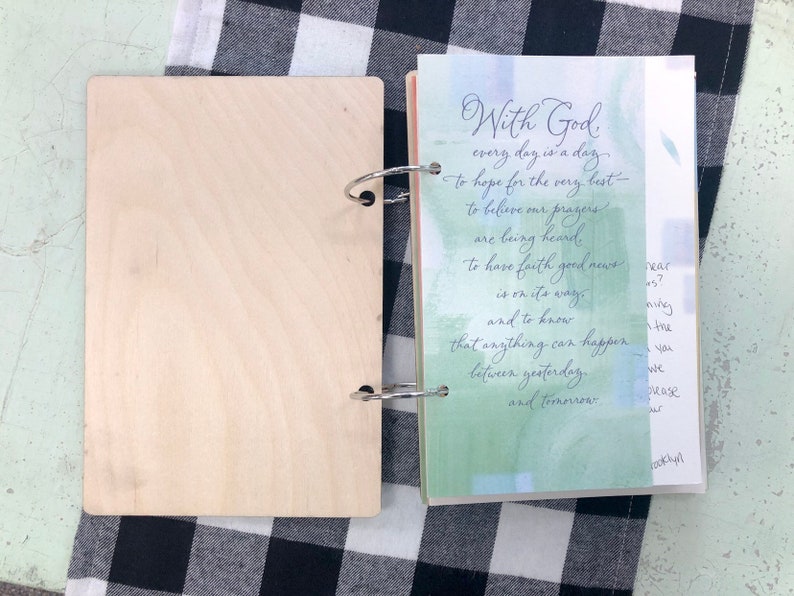 With God,
every day is a day
to hope for the very best—
to believe our prayers
are being heard,
to have faith good news
is on its way,
and to know
that anything can happen
between yesterday
and tomorrow.
the
you
we
please